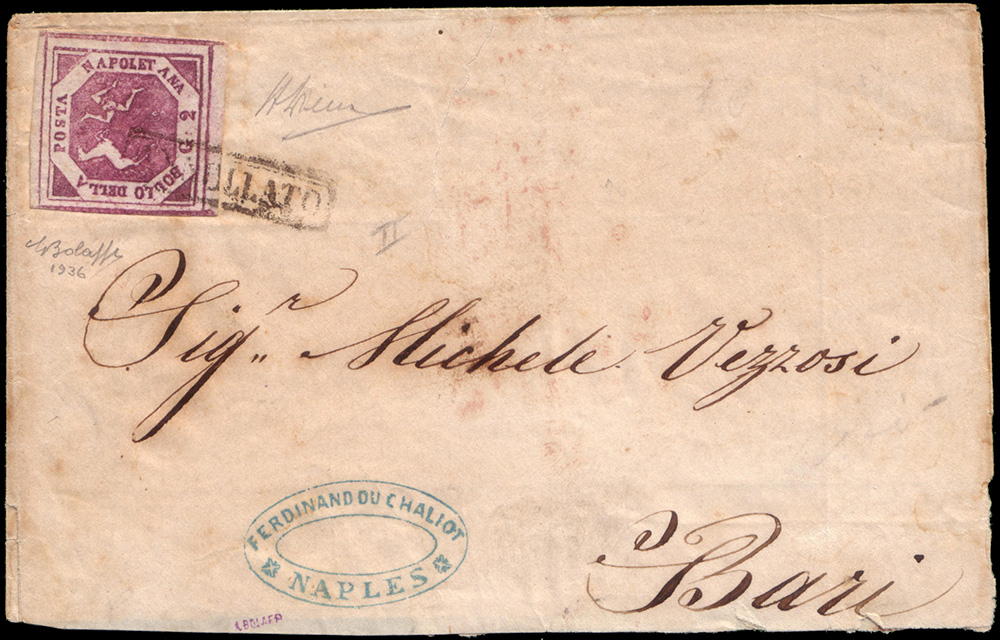 POSTA NAPOLETANA
G. 2
BOLLO DELLA
ULLATO
Bolaffi
1936
II
Sigʳ Michele Vezzosi
FERDINAND DU CHALIOT
NAPLES
Bari
A.BOLAFFI